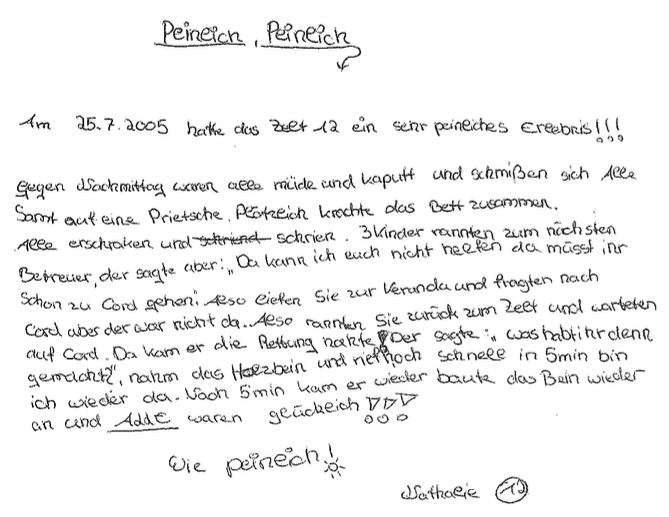 Peinlich, Peinlich
Am 25.7.2005 hatte das Zelt 12 ein sehr peinliches Erlebnis!!!
Gegen Nachmittag waren alle müde und kaputt und schmißen sich Alle
Samt auf eine Prietsche. Plötzlich krachte das Bett zusammen.
Alle erschraken und schriend schrien. 3 Kinder rannten zum nächsten
Betreuer, der sagte aber: „Da kann ich euch nicht helfen da müsst ihr
schon zu Cord gehen". Also liefen Sie zur Veranda und fragten nach
Cord aber der war nicht da. Also rannten Sie zurück zum Zelt und warteten
auf Cord. Da kam er die Rettung nahte! Der sagte: „was habt ihr denn
gemacht?", nahm das Holzbein und rief noch schnell in 5min bin
ich wieder da. Nach 5min kam er wieder baute das Bein wieder
an und ALLE waren glücklich!!!
Wie peinlich!
Nathalie 12